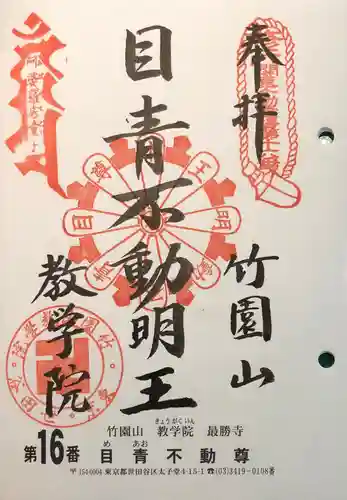 奉拝
目青不動明王
竹園山
教学院
きょうがくいん
竹園山 教学院 最勝寺
め あお
第16番 目青不動尊
〒154-0004 東京都世田谷区太子堂4-15-1 ☎(03)3419-0108番